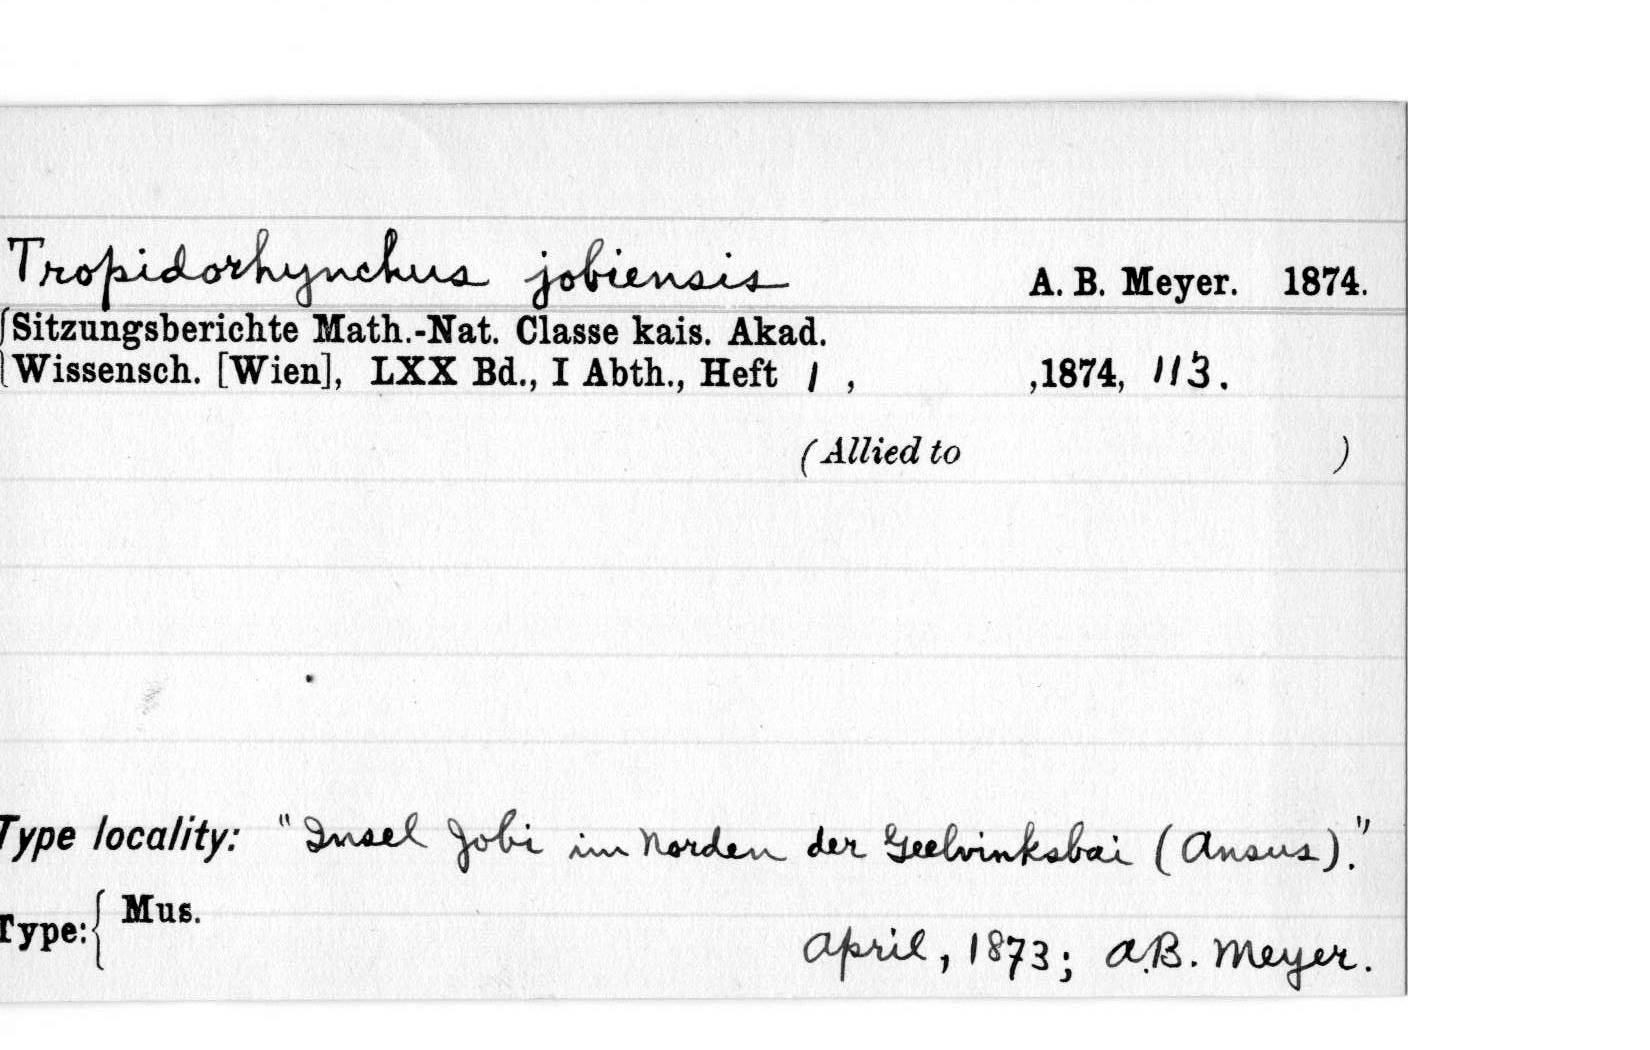 Tropidorhynchus jobiensis A. B. Meyer. 1874.
Sitzungsberichte Math.-Nat. Classe kais. Akad.
Wissensch. [Wien], LXX Bd., I Abth., Heft 1 , ,1874, 113.
(Allied to )
Type locality: "Insel Jobi im Norden der Geelvinksbai (Ansus)."
Type: { Mus.
April, 1873; A.B. Meyer.